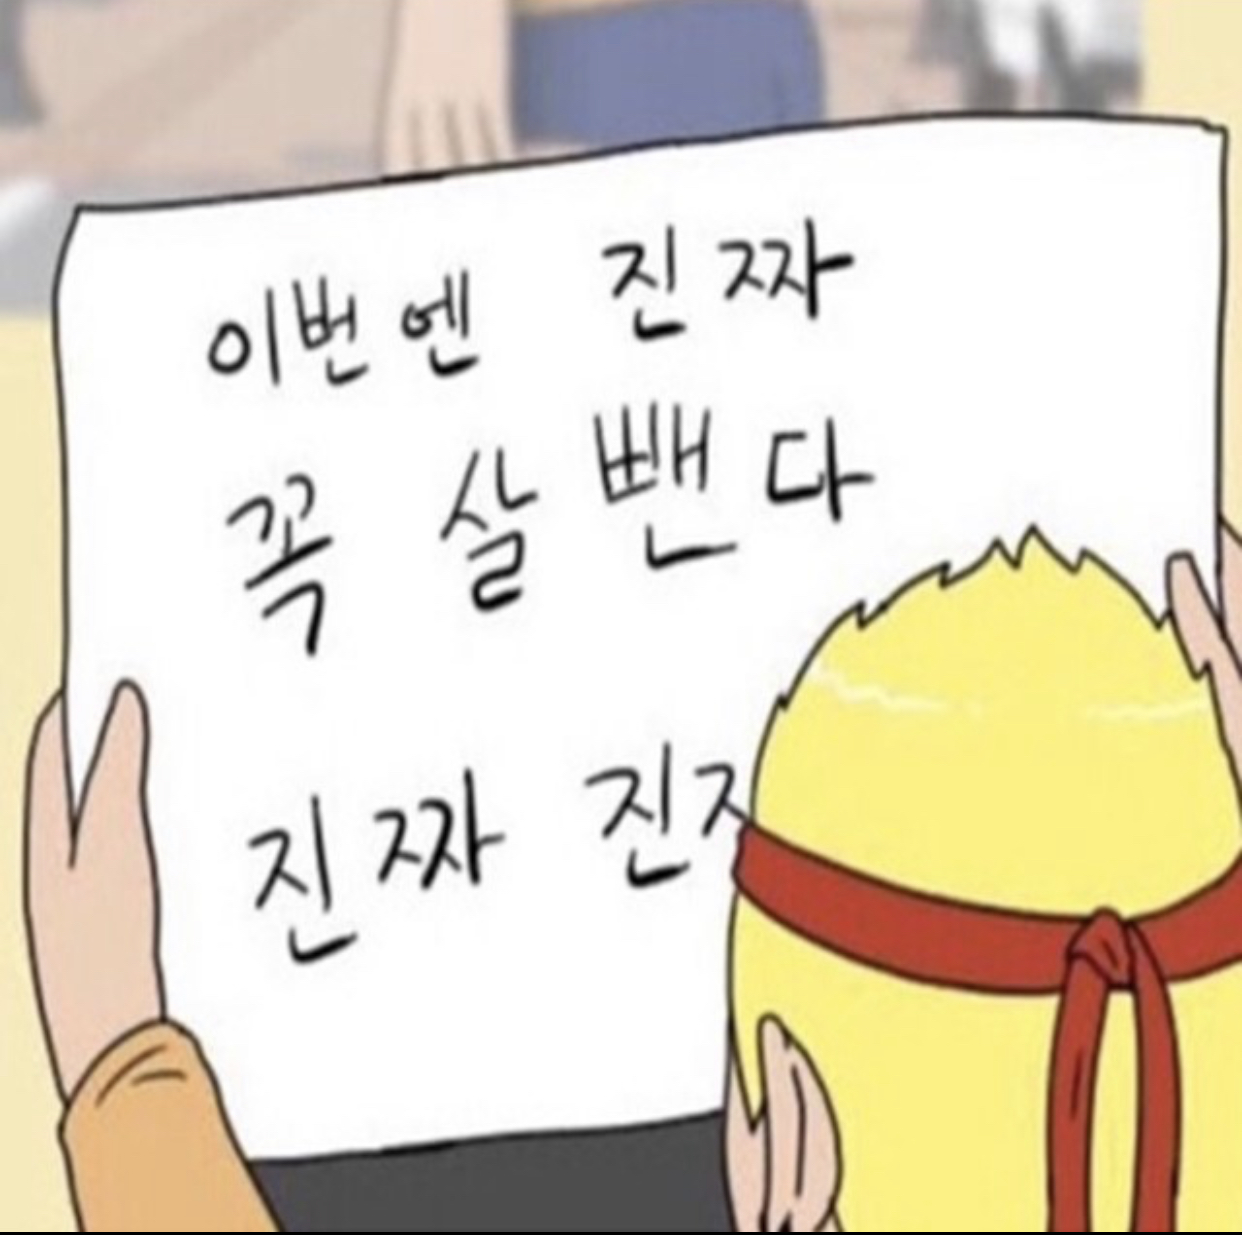 이번엔 진짜
꼭 살 뺀다
진짜 진